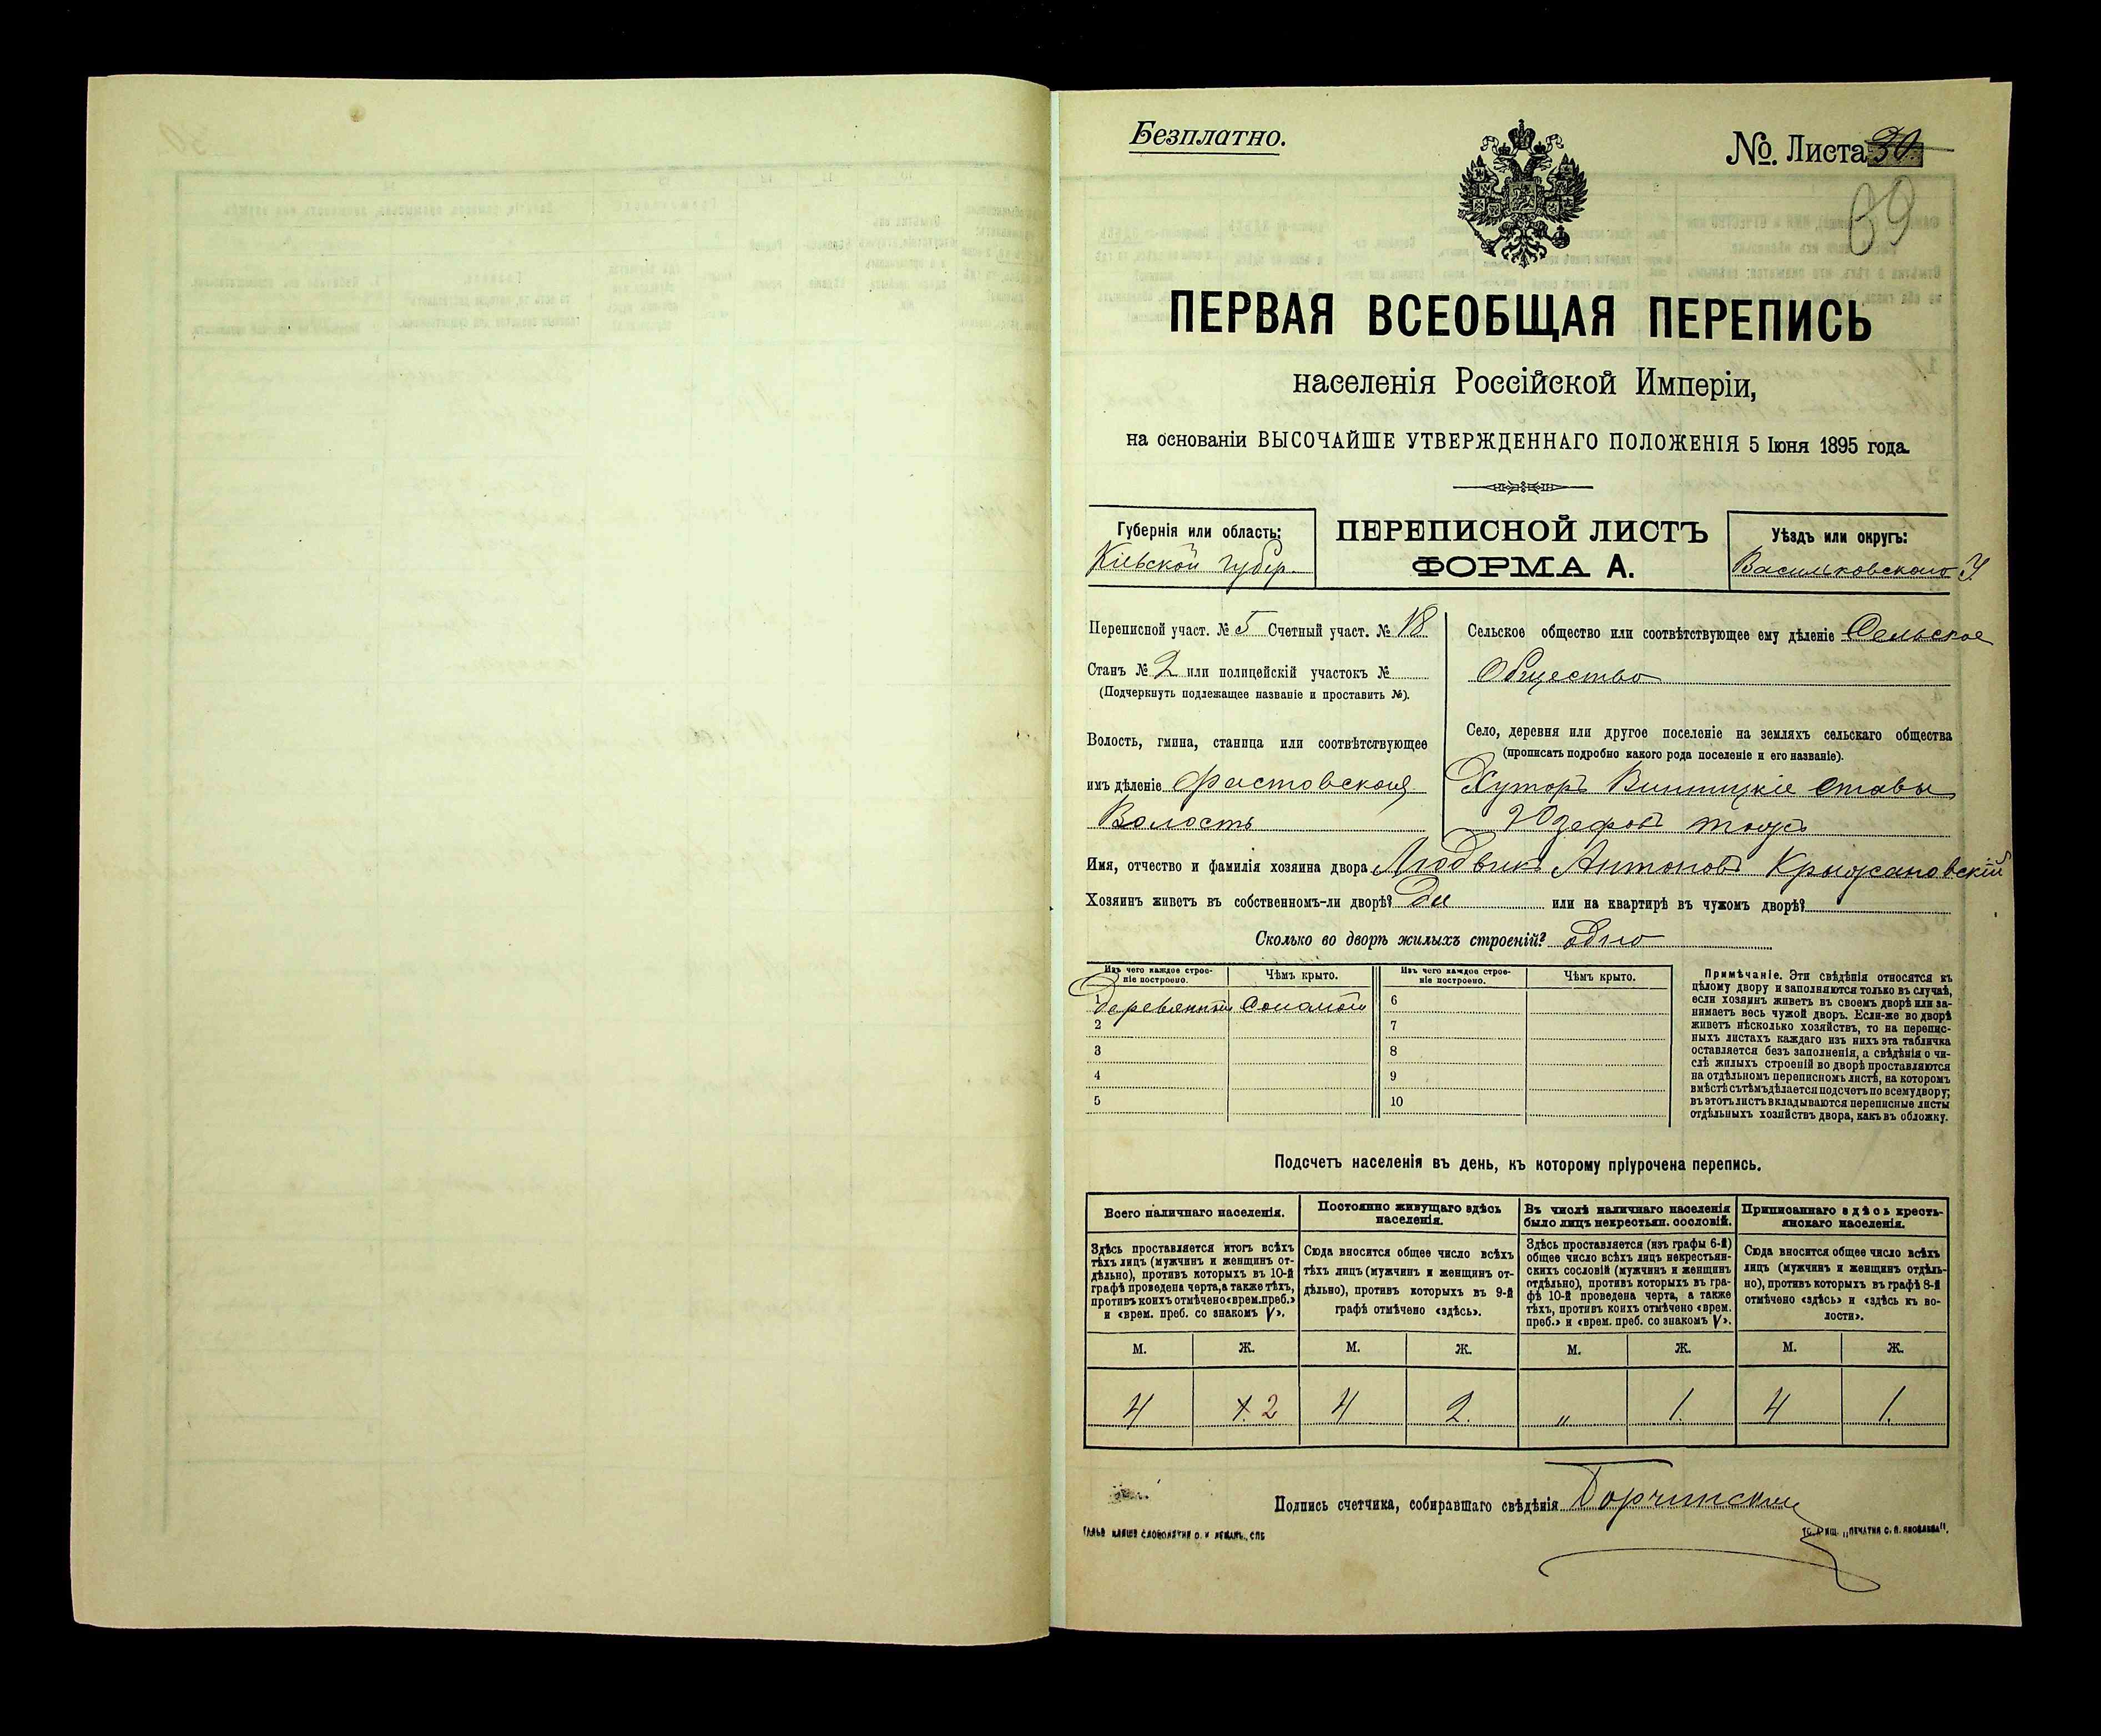 Безплатно.
№. Листа 30
69
ПЕРВАЯ ВСЕОБЩАЯ ПЕРЕПИСЬ
населенія Россійской Имперіи,
на основаніи ВЫСОЧАЙШЕ УТВЕРЖДЕННАГО ПОЛОЖЕНІЯ 5 Іюня 1895 года.
Губернія или область:
Кіевской губер.
ПЕРЕПИСНОЙ ЛИСТЪ
ФОРМА А.
Уѣздъ или округъ:
Васильковскаго У.
Переписной участ. № 5 Счетный участ. № 18
Станъ № 2 или полицейскій участокъ №
(Подчеркнуть подлежащее названіе и проставить №).
Волость, гмина, станица или соотвѣтствующее
имъ дѣленіе Фастовская
Волость
Сельское общество или соотвѣтствующее ему дѣленіе Сельское
Общество
Село, деревня или другое поселеніе на земляхъ сельскаго общества
(прописать подробно какого рода поселеніе и его названіе).
Хуторъ Винницкіе Ставы
Юзефовъ тожъ
Имя, отчество и фамилія хозяина двора Людвикъ Антоновъ Крыжановскій
Хозяинъ живетъ въ собственномъ-ли дворѣ? Да или на квартирѣ въ чужомъ дворѣ?
Сколько во дворѣ жилыхъ строеній? одно
Изъ чего каждое строе-
ніе построено.
Чѣмъ крыто.
Изъ чего каждое строе-
ніе построено.
Чѣмъ крыто.
1 Деревянный Соломой 6
2 7
3 8
4 9
5 10
Примѣчаніе. Эти свѣдѣнія относятся къ
цѣлому двору и заполняются только въ случаѣ,
если хозяинъ живетъ въ своемъ дворѣ или за-
нимаетъ весь чужой дворъ. Если-же во дворѣ
живетъ нѣсколько хозяйствъ, то на перепис-
ныхъ листахъ каждаго изъ нихъ эта табличка
оставляется безъ заполненія, а свѣдѣнія о чи-
слѣ жилыхъ строеній во дворѣ проставляются
на отдѣльномъ переписномъ листѣ, на которомъ
вмѣстѣ съ тѣмъ дѣлается подсчетъ по всему двору;
въ этотъ листъ вкладываются переписные листы
отдѣльныхъ хозяйствъ двора, какъ въ обложку.
Подсчетъ населенія въ день, къ которому пріурочена перепись.
Всего наличнаго населенія.
Постоянно живущаго здѣсь
населенія.
Въ числѣ наличнаго населенія
было лицъ некрестьян. сословій.
Приписаннаго здѣсь кресть-
янскаго населенія.
Здѣсь проставляется итогъ всѣхъ
тѣхъ лицъ (мужчинъ и женщинъ от-
дѣльно), противъ которыхъ въ 10-й
графѣ проведена черта, а также тѣхъ,
противъ коихъ отмѣчено «врем. преб.»
и «врем. преб. со знакомъ V».
Сюда вносится общее число всѣхъ
тѣхъ лицъ (мужчинъ и женщинъ от-
дѣльно), противъ которыхъ въ 9-й
графѣ отмѣчено «здѣсь».
Здѣсь проставляется (изъ графы 6-й)
общее число всѣхъ лицъ некрестьян-
скихъ сословій (мужчинъ и женщинъ
отдѣльно), противъ которыхъ въ гра-
фѣ 10-й проведена черта, а также
тѣхъ, противъ коихъ отмѣчено «врем.
преб.» и «врем. преб. со знакомъ V».
Сюда вносится общее число всѣхъ
лицъ (мужчинъ и женщинъ отдѣль-
но), противъ которыхъ въ графѣ 8-й
отмѣчено «здѣсь» и «здѣсь къ во-
лости».
М. Ж. М. Ж. М. Ж. М. Ж.
4 1. 2 4 2. „ 1. 4 1.
Подпись счетчика, собиравшаго свѣдѣнія